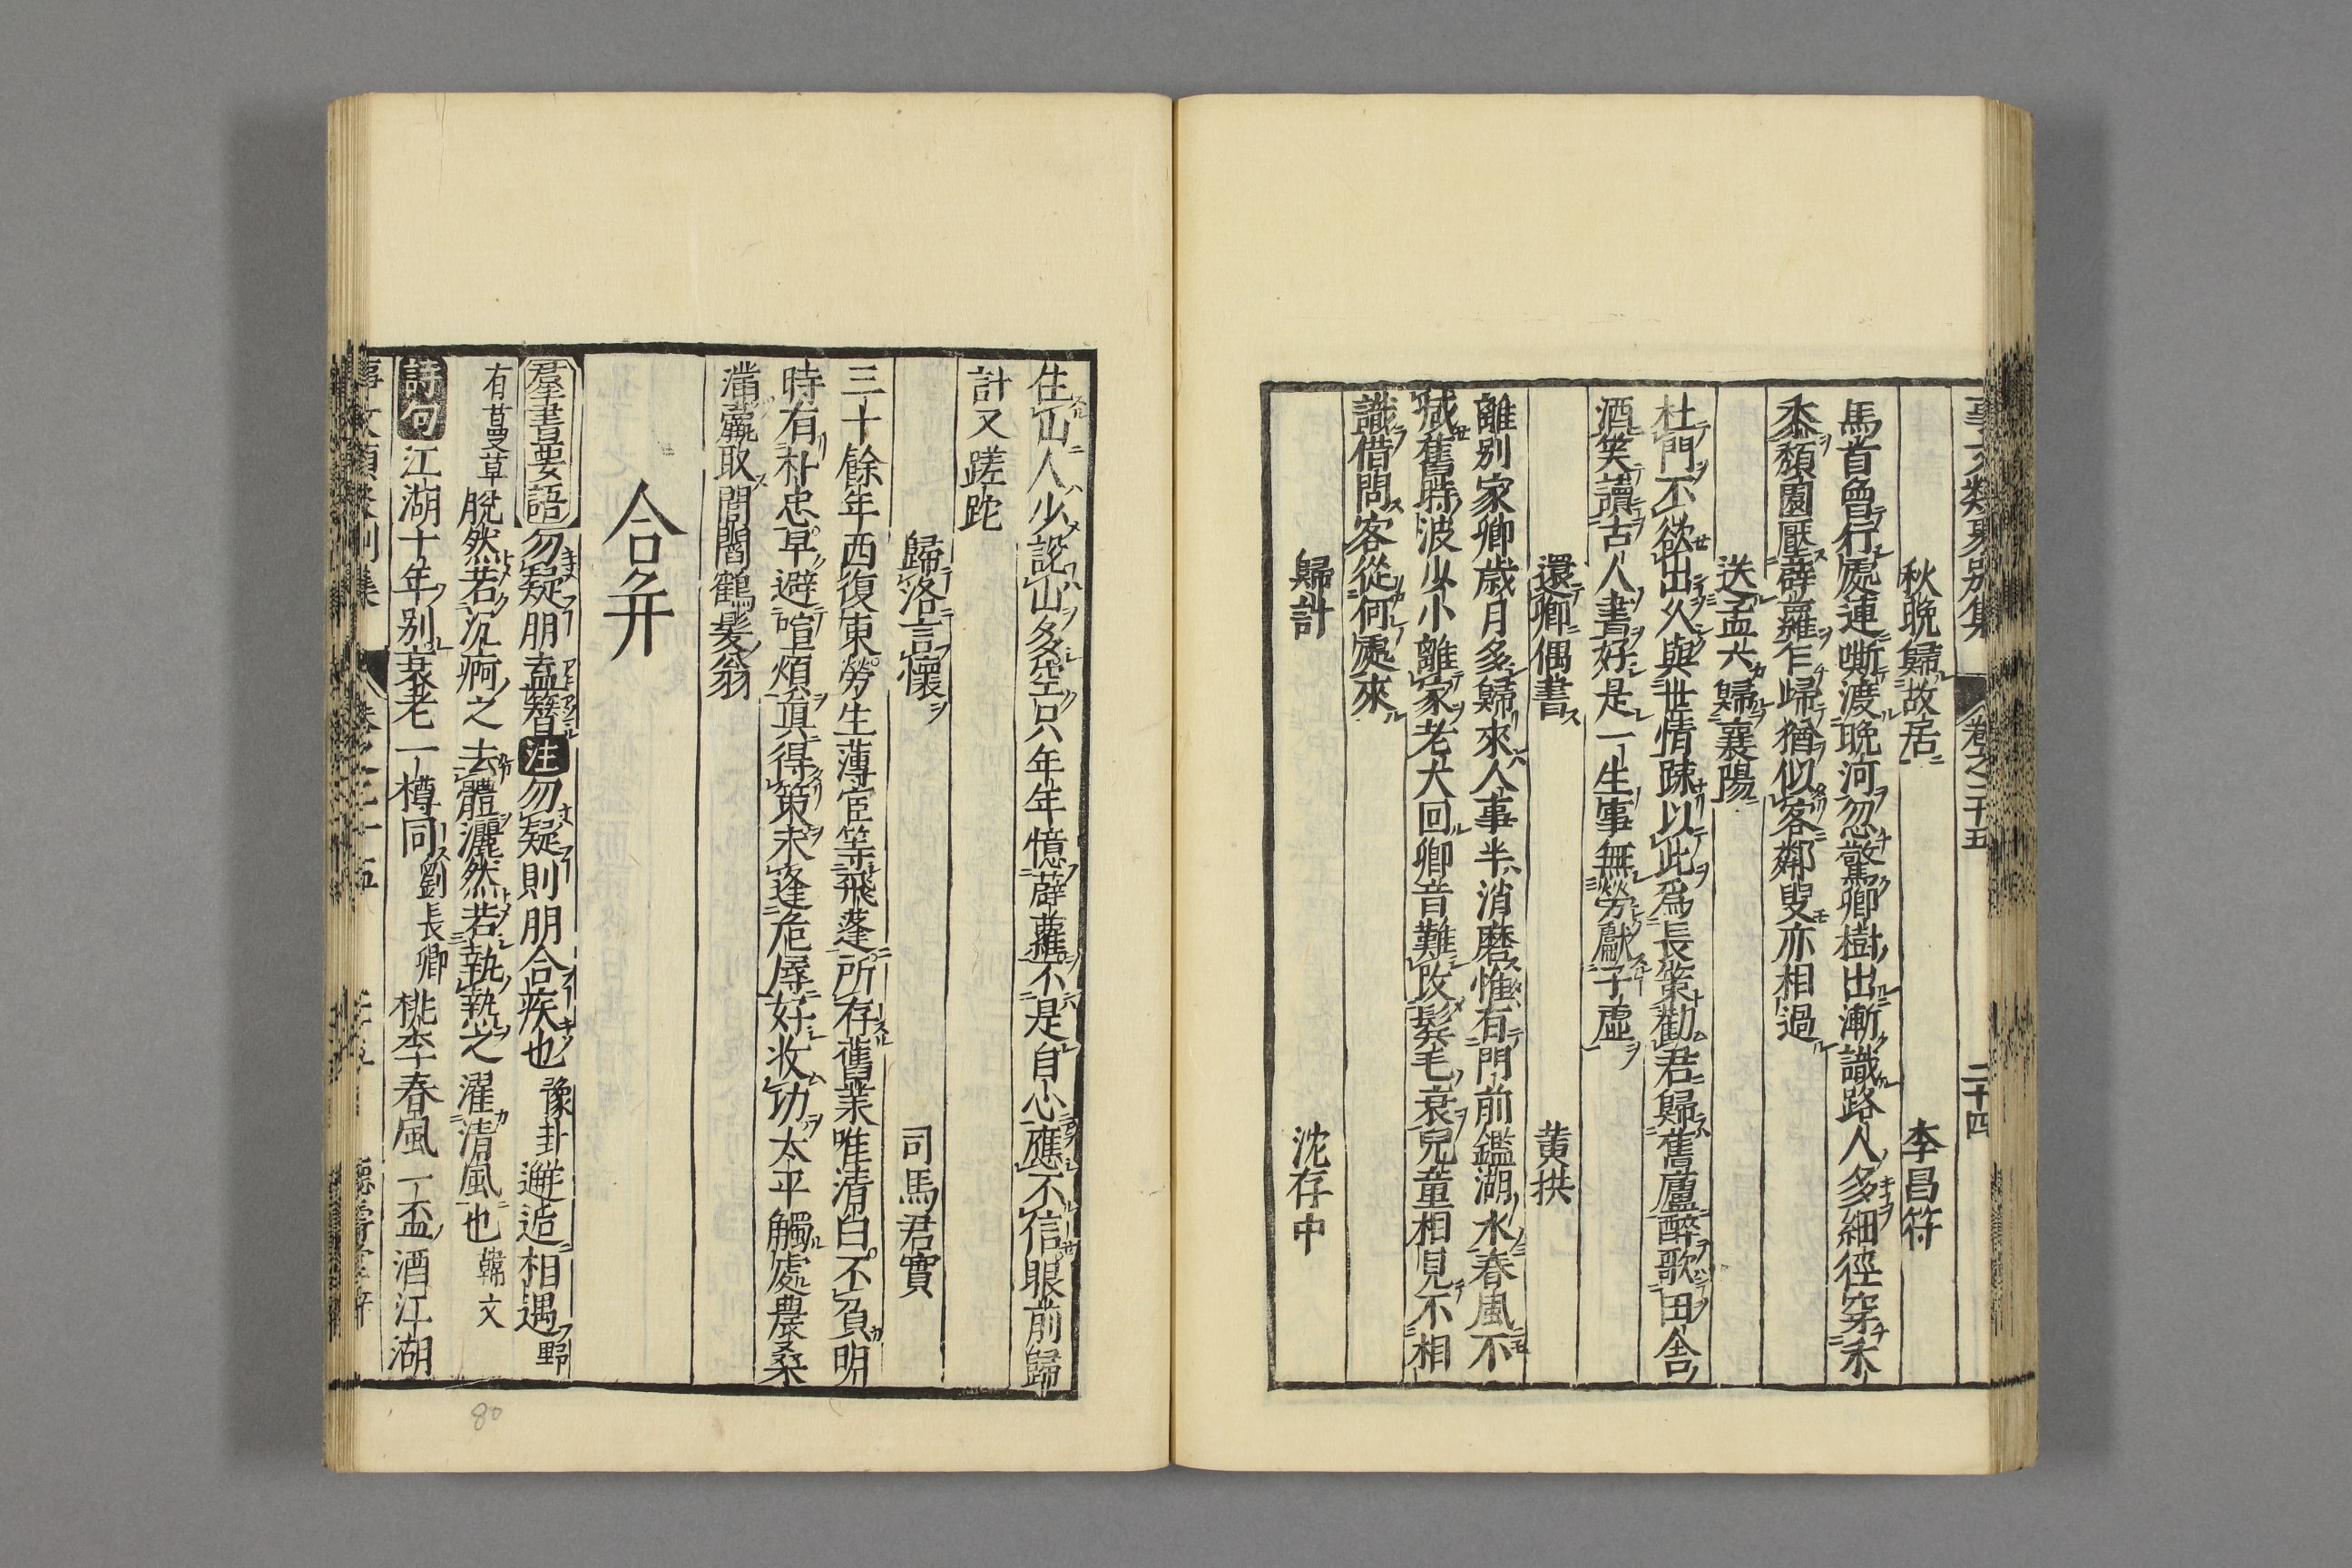 事文類聚別集 卷之二十五 二十四
秋晩歸故居 李昌符
馬首曾行處連嘶渡晩河忽驚鄉樹出漸識路人多細徑穿禾
黍頽園壓薜蘿乍歸猶似客鄰叟亦相過
送孟六歸襄陽
杜門不欲出久與世情踈以此爲長策勸君歸舊廬醉歌田舍
酒笑讀古人書好是一生事無勞獻子虛
還鄉偶書 黄拱
離别家鄉歲月多歸來人事半消磨惟有門前鑑湖水春風不
減舊時波少小離家老大回鄉音難改鬂毛衰兒童相見不相
識借問客從何處來
歸計 沈存中
住山人少說山多空只年年憶薜蘿不是自心應不信眼前歸
計又蹉跎
歸洛言懷 司馬君實
三十餘年西復東勞生薄宦等飛蓬所存舊業唯清白不負明
時有朴忠早避喧煩真得策未逢危辱好收功太平觸處農桑
滿贏取閭閻鶴髪翁
合并
羣書要語勿疑朋盍簪注勿疑則朋合疾也豫卦邂逅相遇野
有蔓草脫然若沉痾之去體灑然若執熱之濯清風也韓文
詩句江湖十年别衰老一樽同劉長卿桃李春風一盃酒江湖